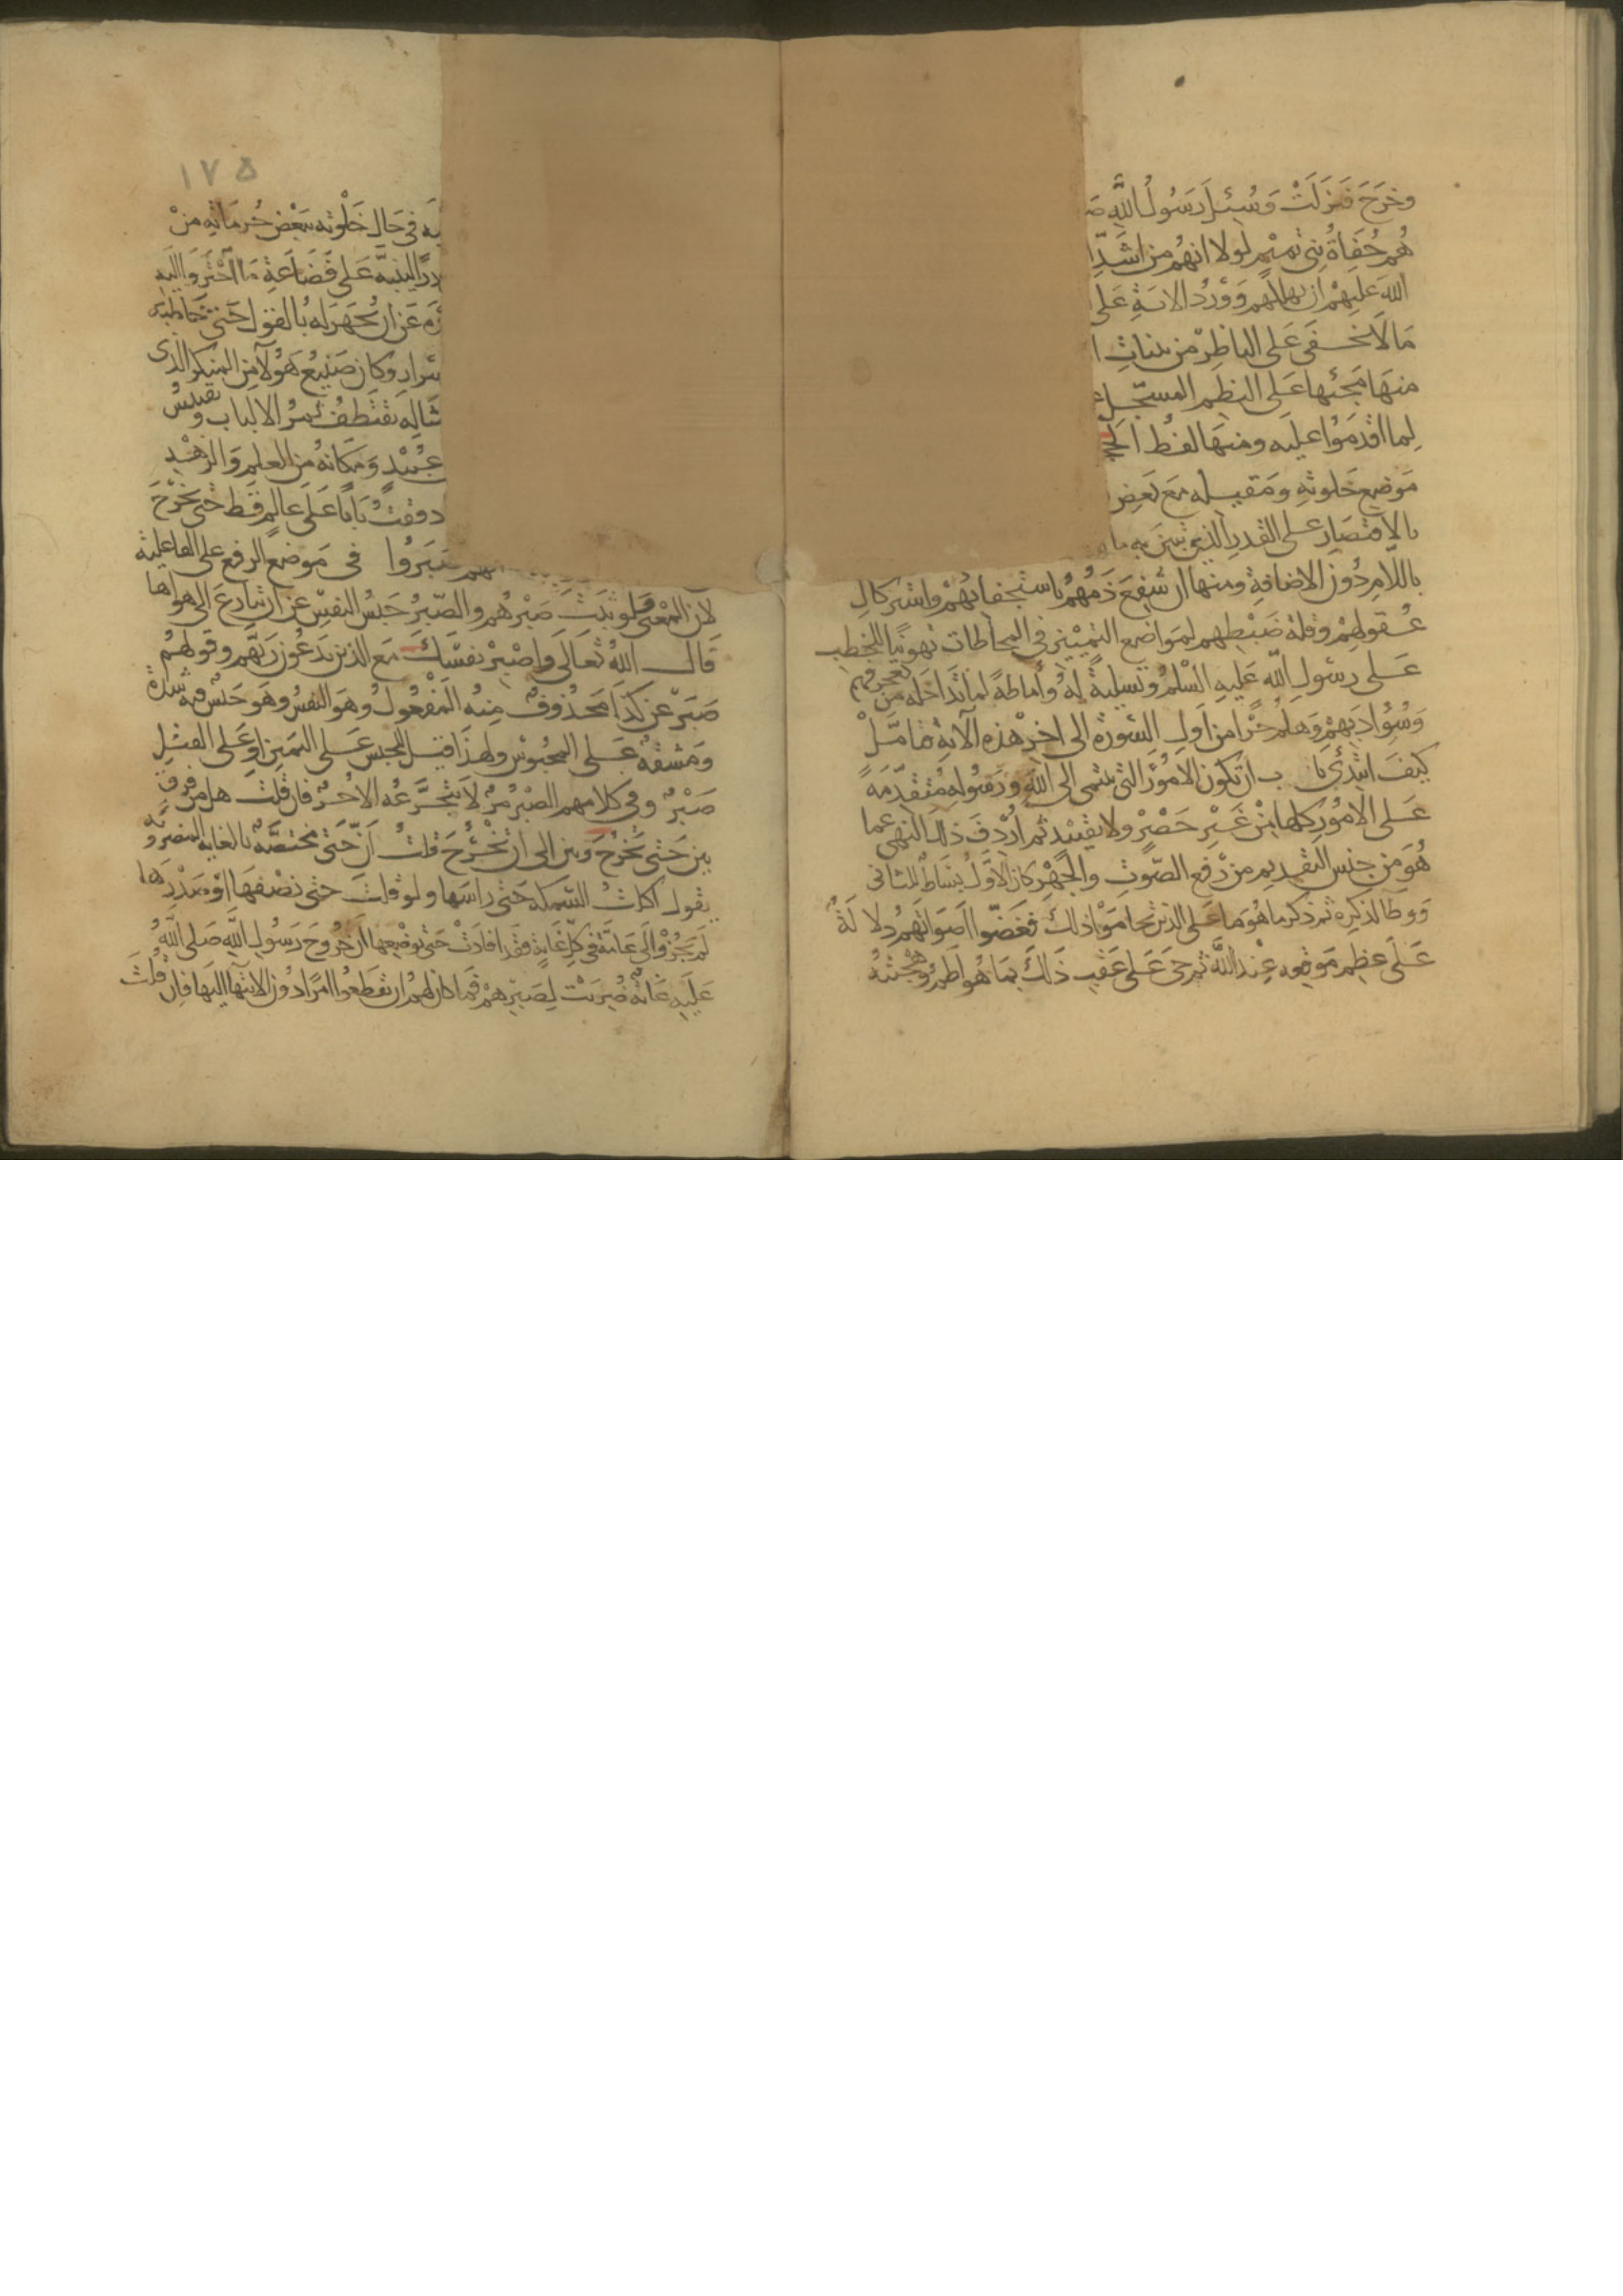 وخرج فنزلت وسئل رسول الله
هم جفاة بني تميم لولا انهم من اشد
الله عليهم ان يهلكهم وورود الاية على
ما لا يخفى على الناظر من بينات
منها مجئها على النظم المسجل
لما اقدموا عليه ومنها لفظ الحجر
موضع خلوته ومقيله مع بعض
بالاقتصار على القدر الذي تبين به ما
باللام دون الاضافة ومنها ان شفع ذمهم باستجفائهم واستركاك
عقولهم وقلة ضبطهم لمواضع التمييز في المخاطبات تهوينا للخطب
على رسول الله عليه السلم وتسلية له واماطة لما تداخله من تعجرفهم
وسؤ ادبهم وهلم جرا من اول السورة الى اخر هذه الاية فتامل
كيف ابتدئ با ب ان تكون الامور التي تنتمي الى الله ورسوله متقدمة
على الامور كلها من غير حصر ولا تقييد ثم اردف ذلك النهي عما
هو من جنس التقديم من رفع الصوت والجهر كان الاول بساط للثاني
ووطا لذكره ثم ذكر ما هو ما على الذين تحاموا ذلك فغضوا اصواتهم دلالة
على عظم موقعه عند الله ثم جئ على عقب ذلك بما هو اطم وهجنته
١٧٥
في حال خلوته ببعض حرماته من
لينبه على فضاعة ما اجتروا اليه
عن ان يجهر له بالقول حتى خاطبه
وكان صنيع هؤلاء من المنكر الذي
يقتطف ثمر الالباب وتقتبس
عبيد ومكانه من العلم والزهد
دققت بابا على عالم قط حتى يخرج
انهم صبروا في موضع الرفع على الفاعلية
لان المعنى ولو ثبت صبرهم والصبر حبس النفس عن ان تنازع الى هواها
قال الله تعالى واصبر نفسك مع الذين يدعون ربهم وقولهم
صبر عن كذا محذوف منه المفعول وهو النفس وهو حبس فيه شدة
ومشقة على المحبوس ولهذا قيل للحبس على اليمين او على القتل
صبر وفي كلامهم الصبر مر لا يتجرعه الا حر فان قلت هل من فرق
بين حتى تخرج وبين الى ان تخرج قلت ان حتى مختصة بالغاية المضروبة
تقول اكلت السمكة حتى راسها ولو قلت حتى نصفها او صدرها
لم يجز والى عامة في كل غاية فقد افادت حتى بوضعها ان خروج رسول الله صلى الله
عليه غاية ضربت لصبرهم فما كان لهم ان يقطعوا امرا دون الانتهاء اليها فان قلت